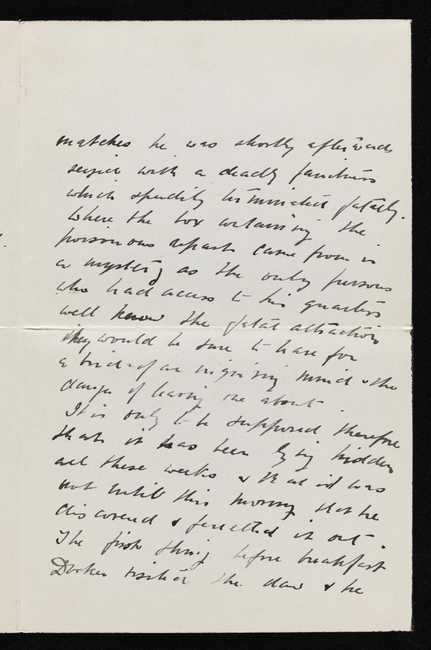 matches he was shortly afterward
seized with a deadly faintness
which speedily terminated fatally.
Where the box containing the
poisonous repast came from is
a mystery as the only persons
who had access to his quarters
well know the fatal attraction
they would be sure to have for
a bird of an inquiring mind & the
danger of leaving one about.
It is only to be supposed therefore
that it has been lying hidden
all these weeks & that it was
not until this morning that he
discovered & ferretted it out.
The first thing before breakfast
visited the daw & he